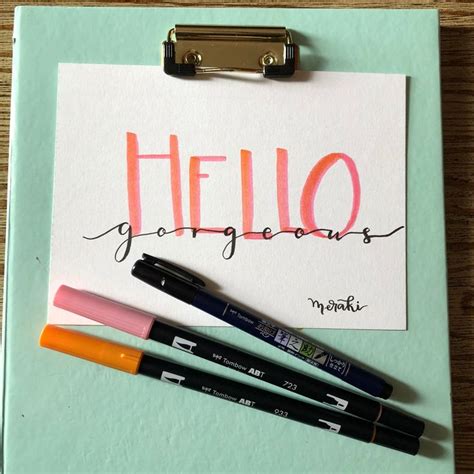 HELLO
gorgeous
meraki
Tombow ABT
723
Tombow ABT
933